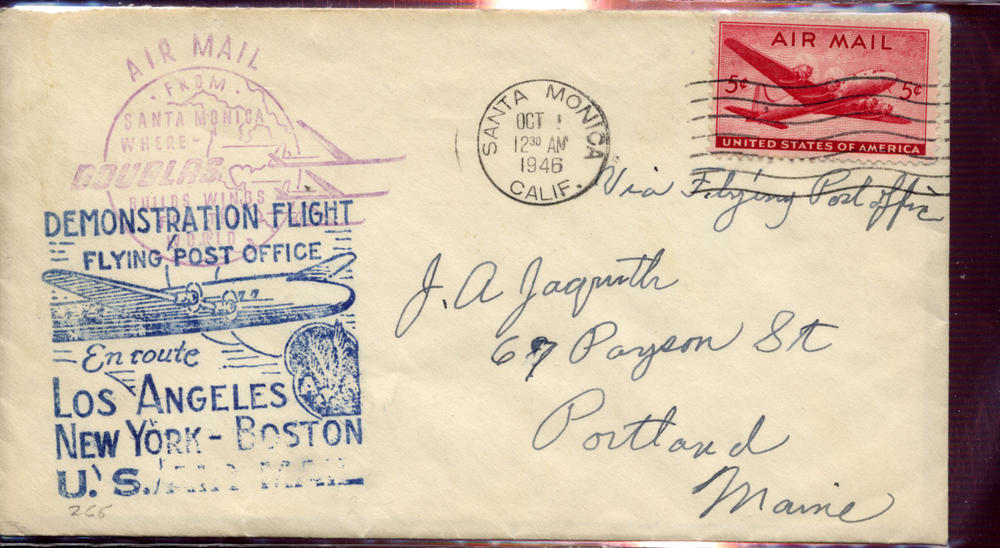 AIR MAIL
· FROM ·
SANTA MONICA
WHERE -
DOUGLAS
BUILDS WINGS
WORLD
DEMONSTRATION FLIGHT
FLYING POST OFFICE
En route
LOS ANGELES
NEW YORK - BOSTON
U. S. AIR MAIL
265
SANTA MONICA
OCT 1
12 30 AM
1946
CALIF.
AIR MAIL
5¢ 5¢
UNITED STATES OF AMERICA
Via Flying Post Office
J. A Jaquith
67 Payson St
Portland
Maine